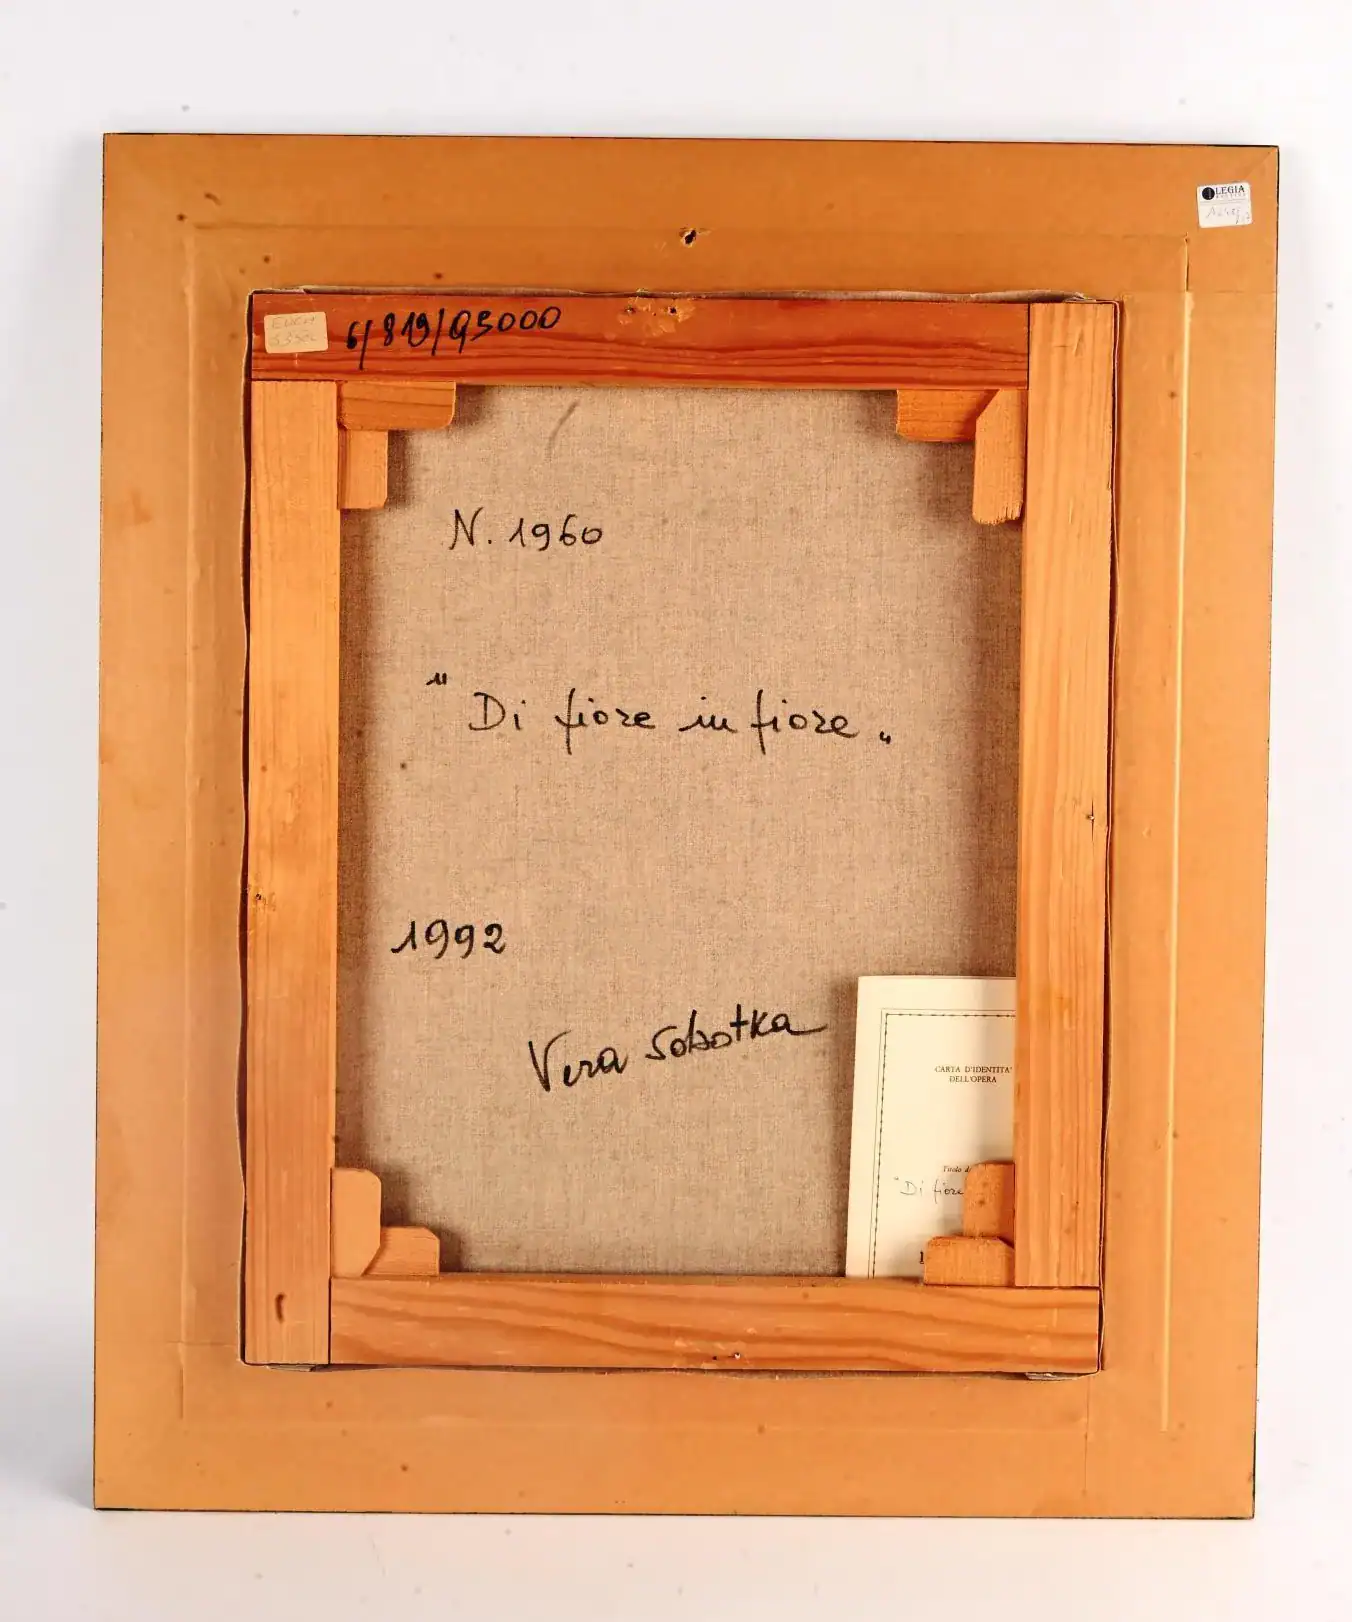 LEGIA
6/819/93000
N. 1960
"Di fiore in fiore"
1992
Vera Sobotka
CARTA D'IDENTITA'
DELL'OPERA
Titolo d
"Di fiore